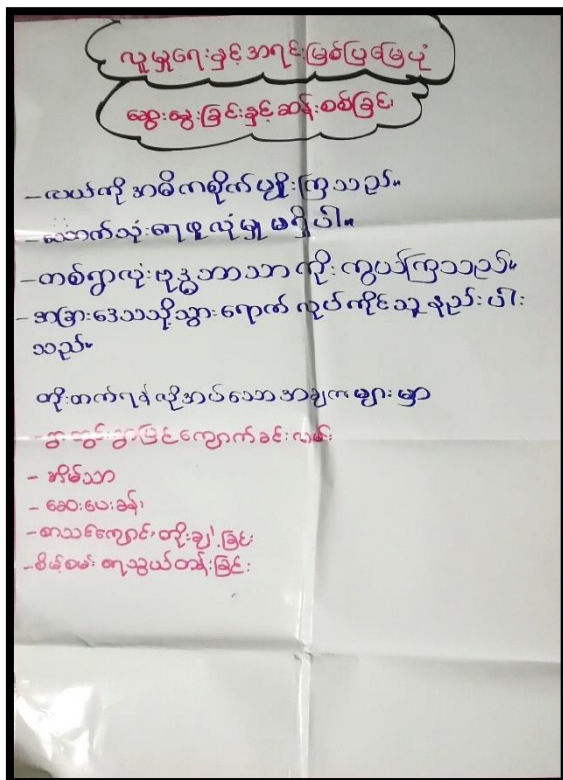 လူမှုရေးနှင့်အရင်းမြစ်ပြမြေပုံ
ဆွေးနွေးခြင်းနှင့်ဆန်းစစ်ခြင်း
-လယ်ကိုအဓိကစိုက်ပျိုးကြသည်။
-သောက်သုံးရေဖူလုံမှုမရှိပါ။
-တစ်ရွာလုံးဗုဒ္ဓဘာသာကိုးကွယ်ကြသည်။
-အခြားဒေသသို့သွားရောက်လုပ်ကိုင်သူနည်းပါး
သည်။
တိုးတက်ရန်လိုအပ်သောအချက်များမှာ
-ရွာတွင်းရွာပြင်ကျောက်ခင်းလမ်း
- အိမ်သာ
- ဆေးပေးခန်း
-စာသင်ကျောင်းတိုးချဲ့ခြင်း
-စိမ့်စမ်းရေသွယ်တန်းခြင်း